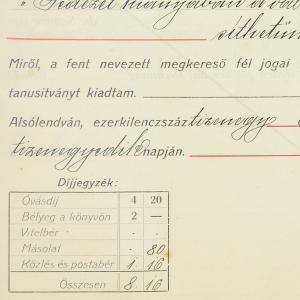 "Fedezet hiányában és
síthetün
Miről, a fent nevezett megkereső fél jogai
tanusitványt kiadtam.
Alsólendván, ezerkilenczszáz tizenegy
tizenegyedik napján.
Díjjegyzék:
Óvásdíj 4 20
Bélyeg a könyvön 2 —
Vitelbér . .
Másolat . 80
Közlés és postabér 1 16
Összesen 8 16